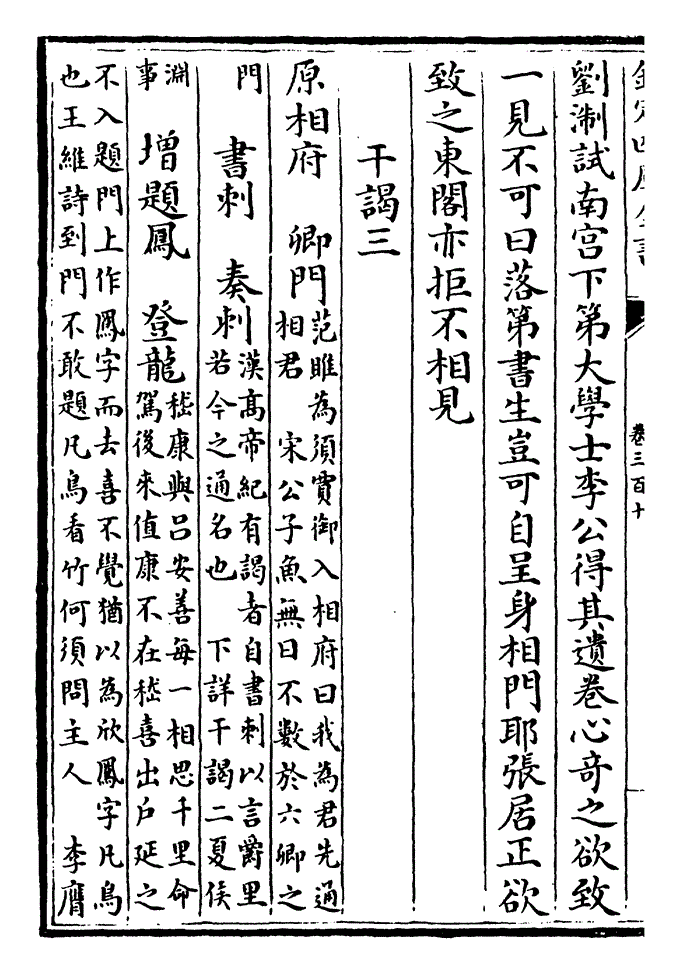 欽定四庫全書
卷三百十
劉淛試南宫下第大學士李公得其遺卷心奇之欲致
一見不可曰落第書生豈可自呈身相門耶張居正欲
致之東閣亦拒不相見
干謁三
原相府 卿門 范雎為須賈御入相府曰我為君先通
相君 宋公子魚無曰不數於六卿之
門 書刺 奏刺 漢髙帝紀有謁者自書刺以言爵里
若今之通名也 下詳干謁二夏侯
淵
事 增題鳳 登龍 嵇康與吕安善每一相思千里命
駕後來值康不在嵇喜出户延之
不入題門上作鳳字而去喜不覺猶以為欣鳳字凡鳥
也王維詩到門不敢題凡鳥看竹何須問主人 李膺